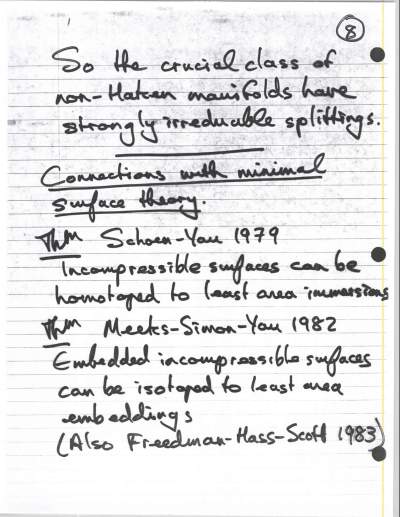 8
So the crucial class of
non-Haken manifolds have
strongly irreducible splittings.
Connections with minimal
surface theory.
Thm Schoen-Yau 1979
Incompressible surfaces can be
homotoped to least area immersions
Thm Meeks-Simon-Yau 1982
Embedded incompressible surfaces
can be isotoped to least area
embeddings
(Also Freedman-Hass-Scott 1983)